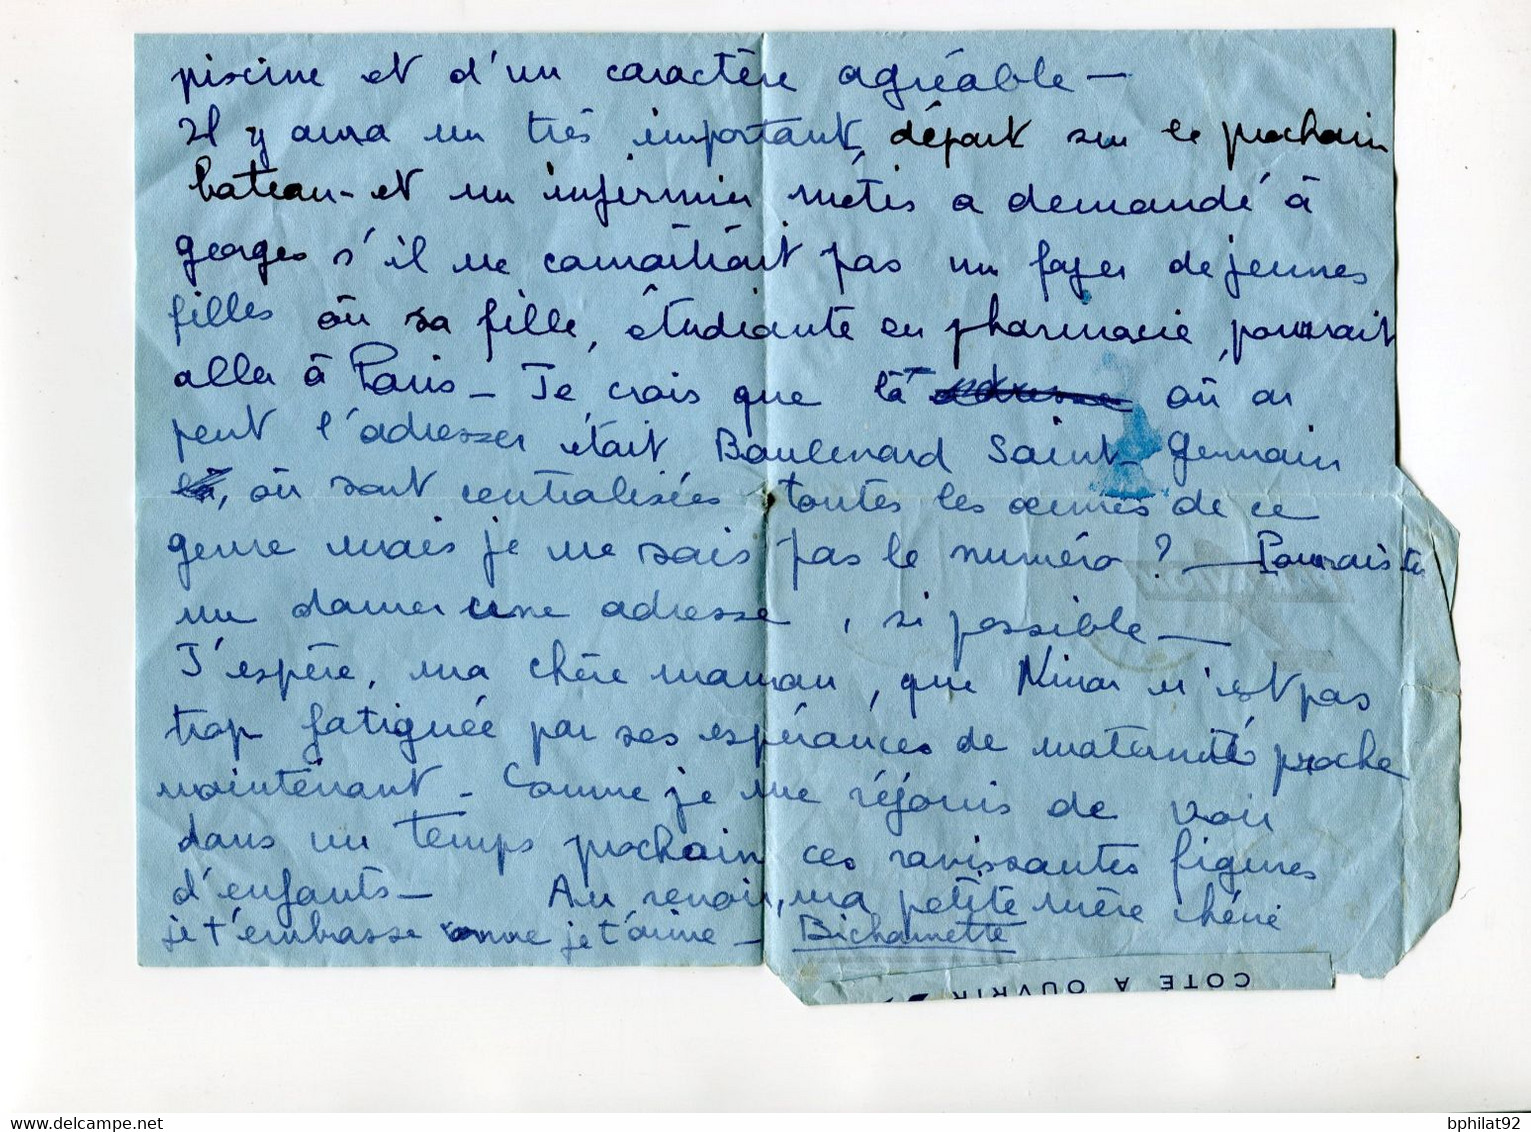 piscine et d'un caractère agréable —
Il y aura un très important départ sur le prochain
bateau - et un infirmier métis a demandé à
Georges s'il ne connaîtrait pas un foyer de jeunes
filles où sa fille, étudiante en pharmacie, pourrait
aller à Paris — Je crois que là adresse où on
peut s'adresser était Boulevard Saint-Germain
là, où sont centralisées toutes les œuvres de ce
genre mais je ne sais pas le numéro ? — Pourrais tu
me donner une adresse, si possible —
J'espère, ma chère maman, que Ninon n'est pas
trop fatiguée par ses espérances de maternité proche
maintenant - Comme je me réjouis de voir
dans un temps prochain ces ravissantes figures
d'enfants — Au revoir, ma petite mère chérie
je t'embrasse comme je t'aime — Bichonnette
COTE A OUVRIR
bphilat92
www.delcampe.net